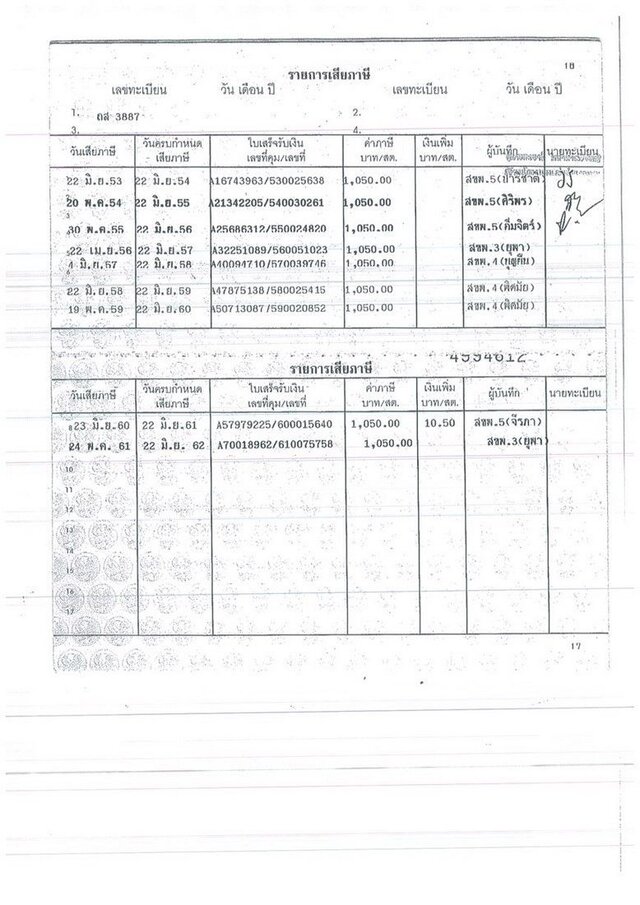 18
รายการเสียภาษี
เลขทะเบียน วัน เดือน ปี เลขทะเบียน วัน เดือน ปี
1. ถส 3887 2.
3. 4.
วันเสียภาษี วันครบกำหนดเสียภาษี ใบเสร็จรับเงิน เลขที่คุม/เลขที่ ค่าภาษี บาท/สต. เงินเพิ่ม บาท/สต. ผู้บันทึก นายทะเบียน
22 มิ.ย.53 22 มิ.ย.54 A16743963/530025638 1,050.00 สขพ.5
20 พ.ค.54 22 มิ.ย.55 A21342205/540030261 1,050.00 สขพ.5(ศิริพร)
30 พ.ค.55 22 มิ.ย.56 A25686312/550024820 1,050.00 สขพ.5
22 เม.ย.56 22 มิ.ย.57 A32251089/560051023 1,050.00 สขพ.3(ยุพา)
4 มิ.ย.57 22 มิ.ย.58 A40094710/570039746 1,050.00 สขพ.4
22 มิ.ย.58 22 มิ.ย.59 A47875138/580025415 1,050.00 สขพ.4(พิศมัย)
19 พ.ค.59 22 มิ.ย.60 A50713087/590020852 1,050.00 สขพ.4(พิศมัย)
4994612
รายการเสียภาษี
วันเสียภาษี วันครบกำหนดเสียภาษี ใบเสร็จรับเงิน เลขที่คุม/เลขที่ ค่าภาษี บาท/สต. เงินเพิ่ม บาท/สต. ผู้บันทึก นายทะเบียน
23 มิ.ย.60 22 มิ.ย.61 A57979225/600015640 1,050.00 10.50 สขพ.5(จิรภา)
24 พ.ค. 61 22 มิ.ย. 62 A70018962/610075758 1,050.00 สขพ.3(ยุพา)
10
11
12
13
14
15
16
17
17